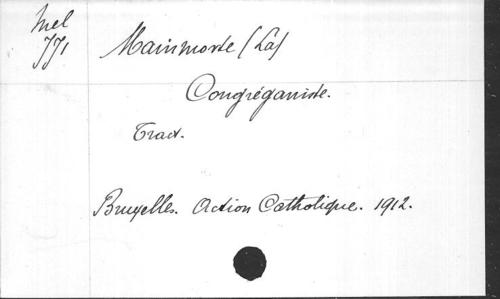 Mel
771
Mainmorte (La)
Congréganiste.
Tract.
Bruxelles. Action Catholique. 1912.